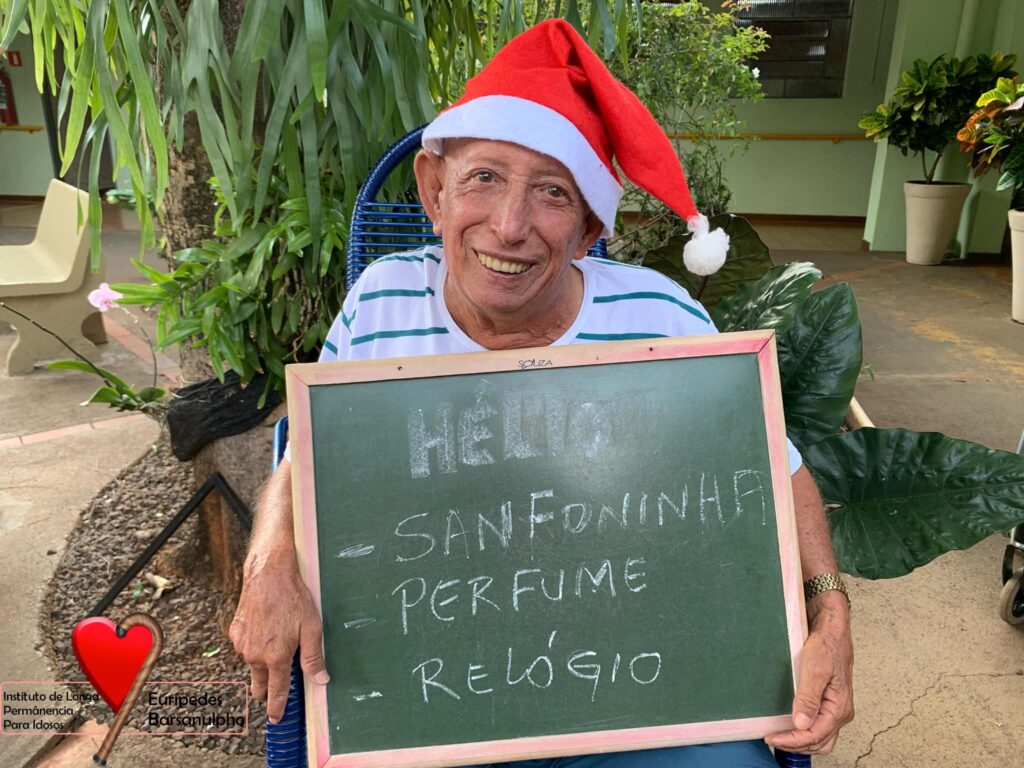 SOUZA
HÉLIO
- SANFONINHA
- PERFUME
- RELÓGIO
Instituto de Longa
Permânencia
Para Idosos
Eurípedes
Barsanulpho